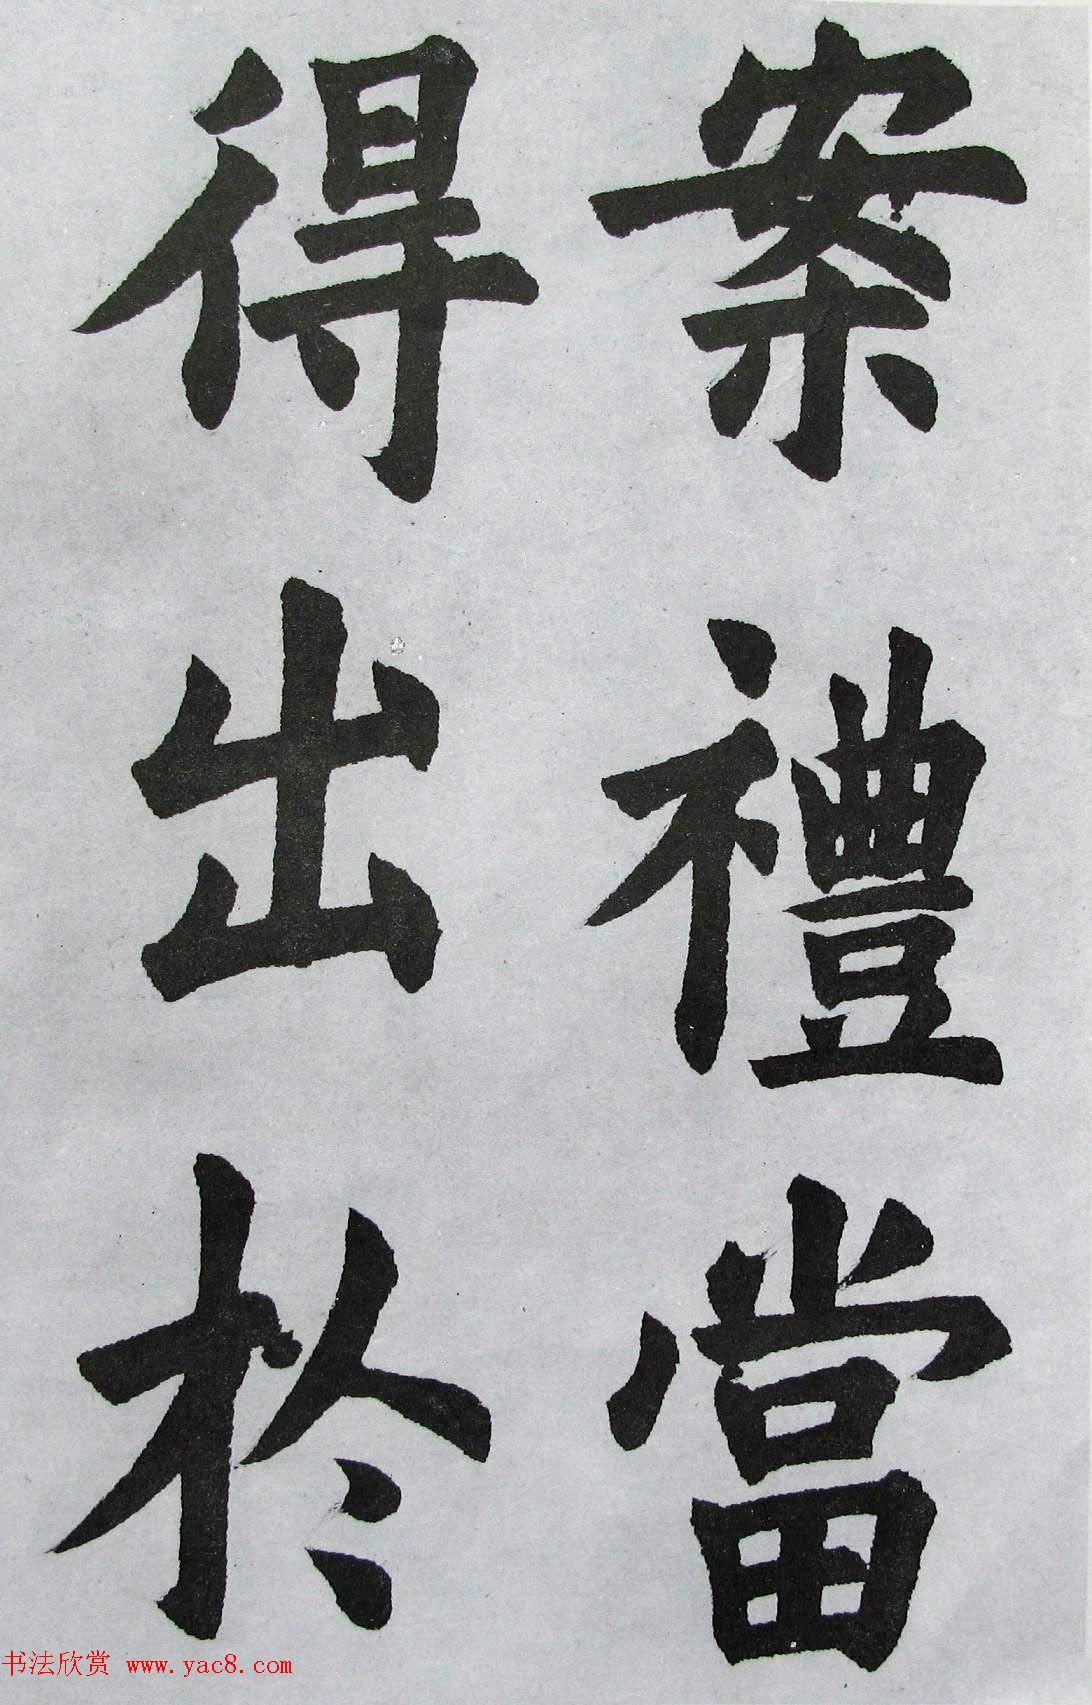 案禮當
得出於
书法欣赏 www.yac8.com